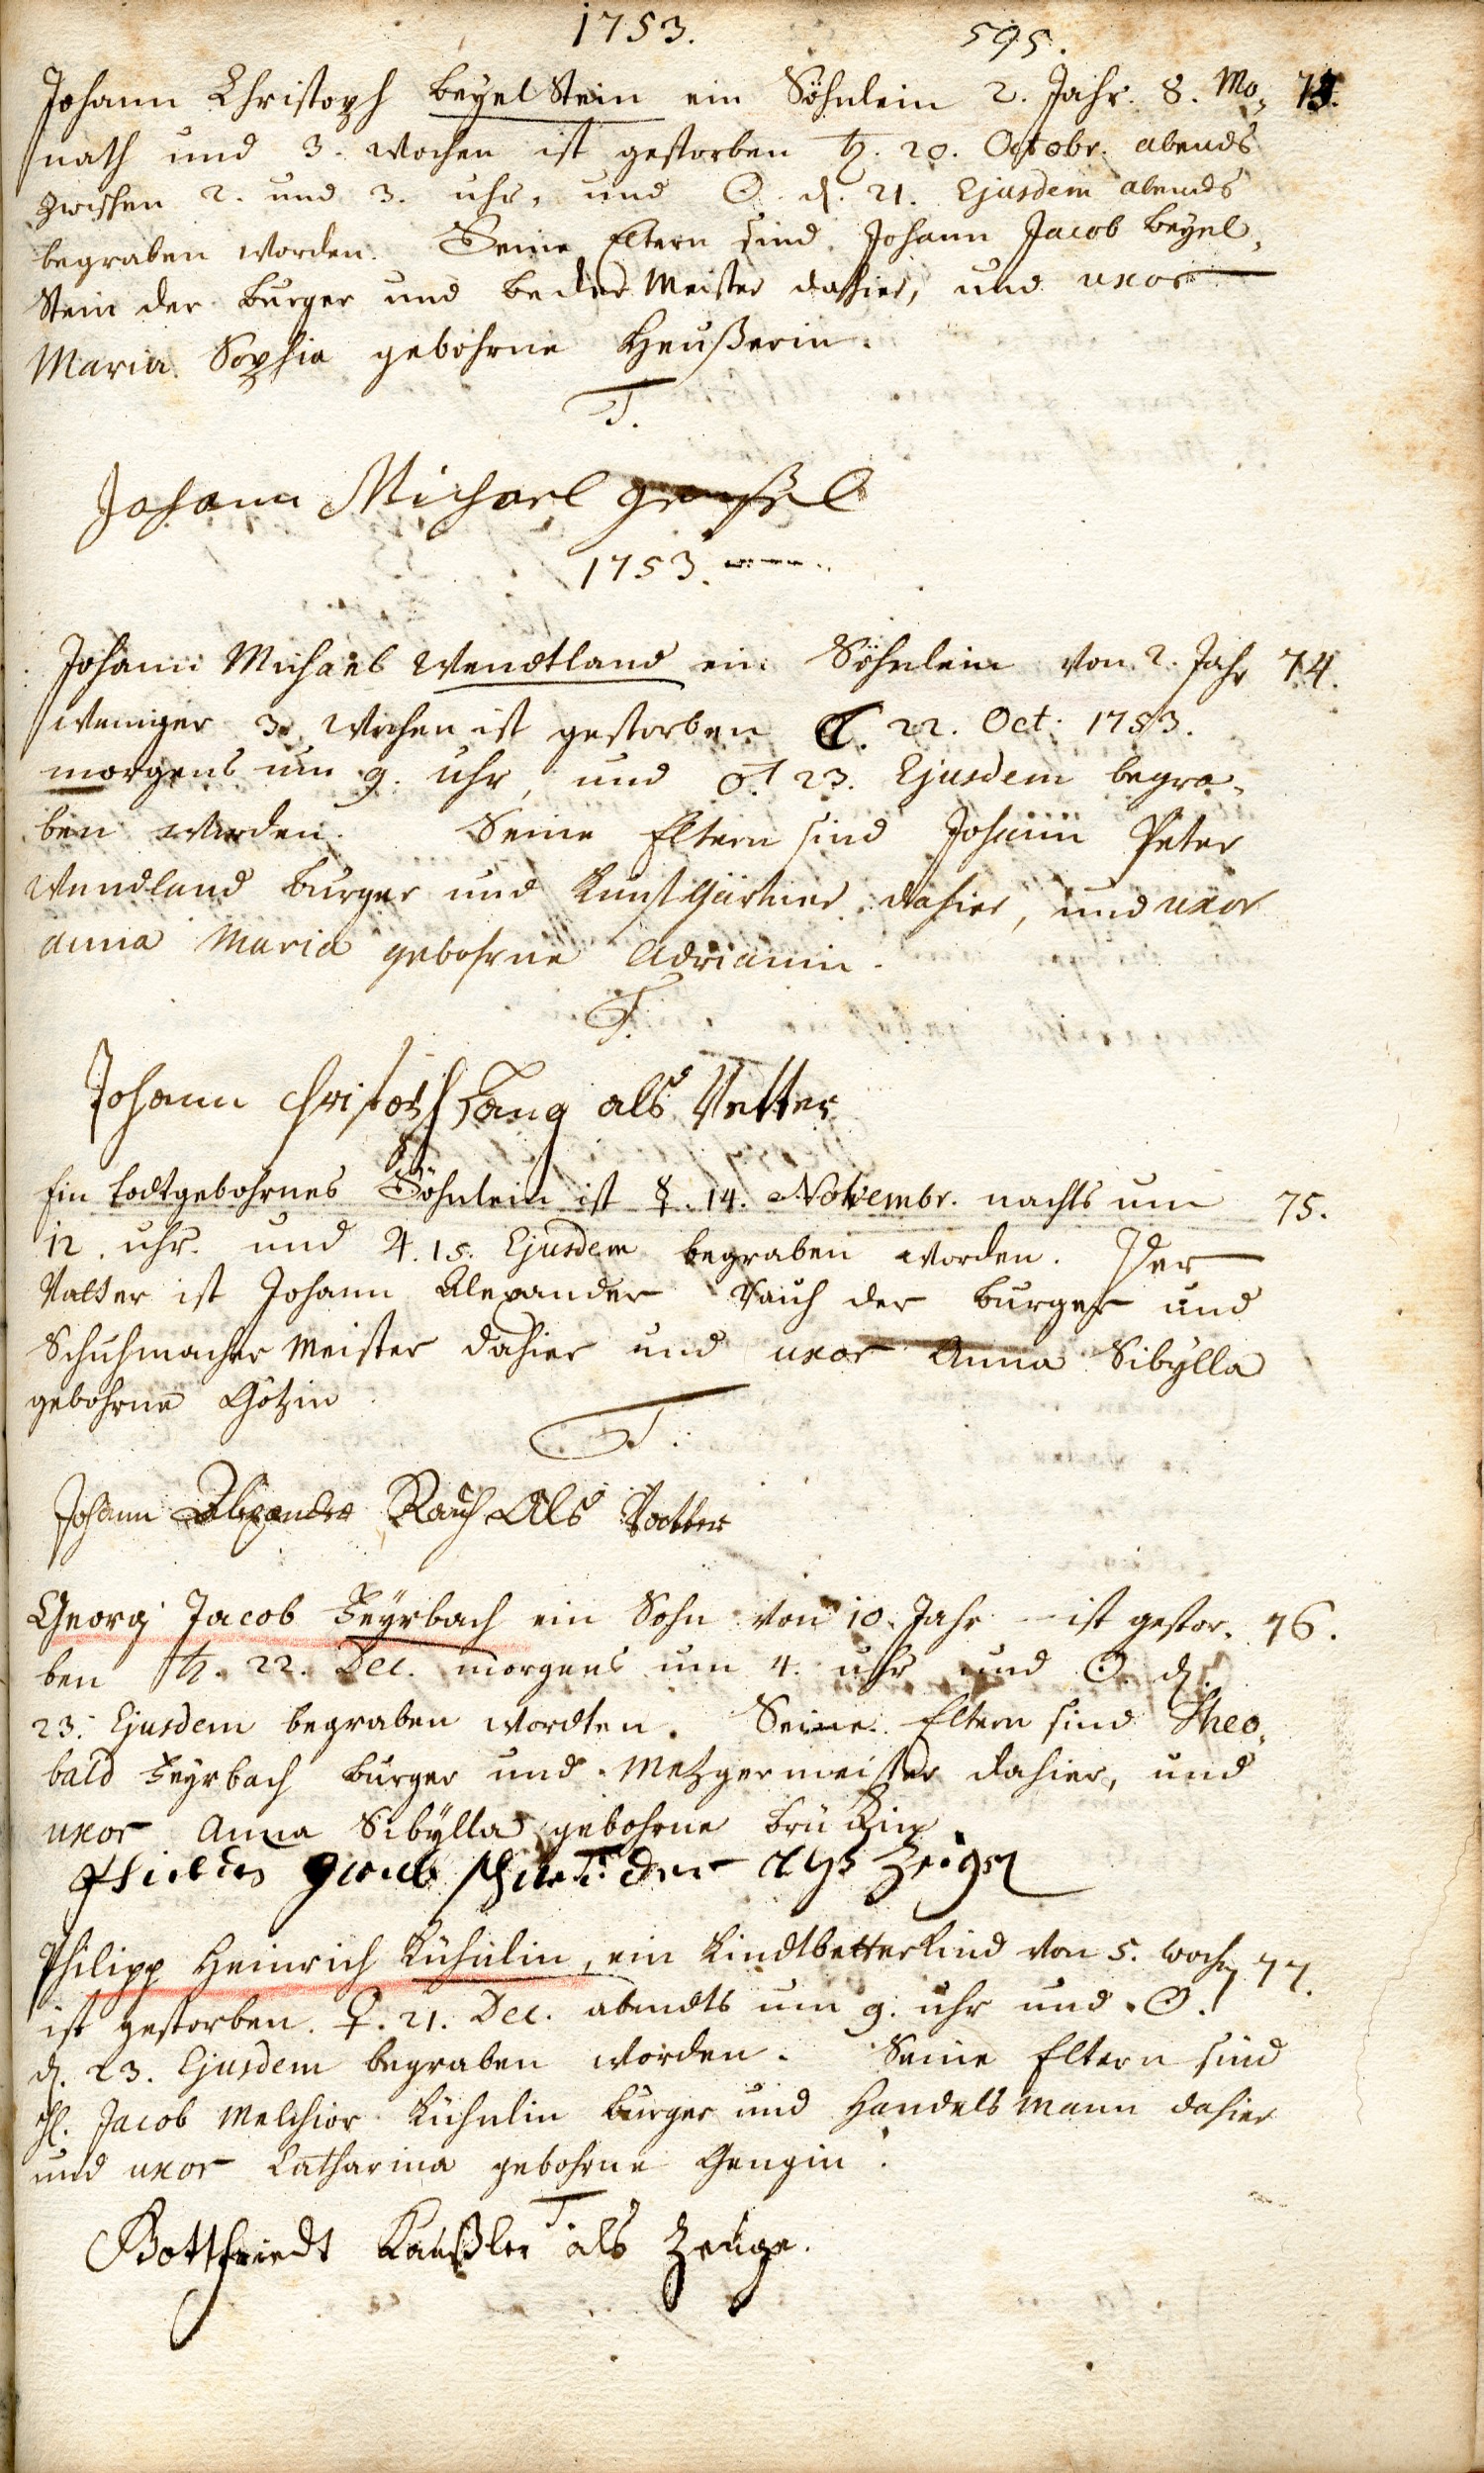 1753. 595.
Johann Christoph Beyel Stein ein Söhnlein 2. Jahr. 8. Mo, 73.
nath und 3. Wochen ist gestorben ♄. 20. Octobr. abends
zwischen 2. und 3. uhr, und ☉ d. 21. Ejusdem abends
begraben worden. Seine Eltern sind Johann Jacob Beyel,
Stein der Burger und Becker Meister dahier, und uxor
Maria Sophia gebohrne Heußerin.
T.
Johann Michael
1753.
Johann Michael Wendtland ein Söhnlein von 2. Jahr 74.
weniger 3. Wochen ist gestorben ☾. 22. Oct. 1753.
morgens um 9. uhr, und ♂. 23. Ejusdem begra,
ben worden. Seine Eltern sind Johann Peter
Wendland Burger und Kunst Gärtner dahier, und uxor
anna Maria gebohrne Adrianin.
T.
Johann christoph Lang als Vetter
Ein todtgebohrnes Söhnlein ist ☿. 14. Novembr. nachts um 75.
12. uhr. und ♃. 15. Ejusdem begraben worden. Der
Vatter ist Johann Alexander Rauch der Burger und
Schuhmacher Meister dahier und uxor Anna Sibylla
gebohrne Götzin
T.
Johann Alexander Rauch Als Vatter
Georg Jacob Feyrbach ein Sohn von 10. Jahr ist gestor, 76.
ben ♄. 22. Dec. morgens um 4. uhr und ☉. d.
23. Ejusdem begraben wordten. Seine Eltern sind Theo,
bald Feyrbach Burger und Metzgermeister dahier, und
uxor Anna Sibylla gebohrne Brückin
T.
Philipp Heinrich Kühnlin, ein Kindtbetterkind von 5. Woch. 77.
ist gestorben. ♀. 21. Dec. abendts um 9. uhr und ☉.
d. 23. Ejusdem begraben worden. Seine Eltern sind
H. Jacob Melchior Kühnlin Burger und Handels Mann dahier
und uxor Catharina gebohrne Gengin.
T.
Gottfriedt Kaußler als Zeuge.